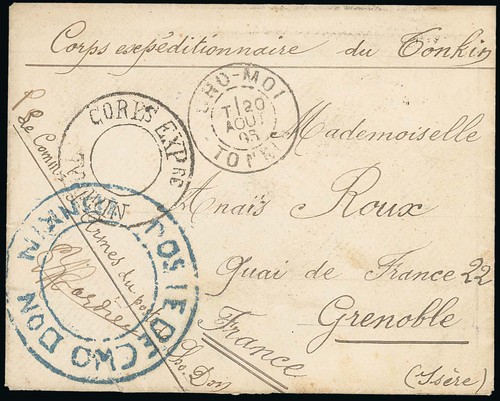 Corps expéditionnaire du Tonkin
CHO-MOI
T 20
AOUT
85
TONKIN
CORPS EXPRE
TONKIN
P. le Comm. d'Armes du poste
Cho. Don
POSTE DE CHO DON
TONKIN
Mademoiselle
Anaïs Roux
Quai de France 22
Grenoble
France
(Isère)